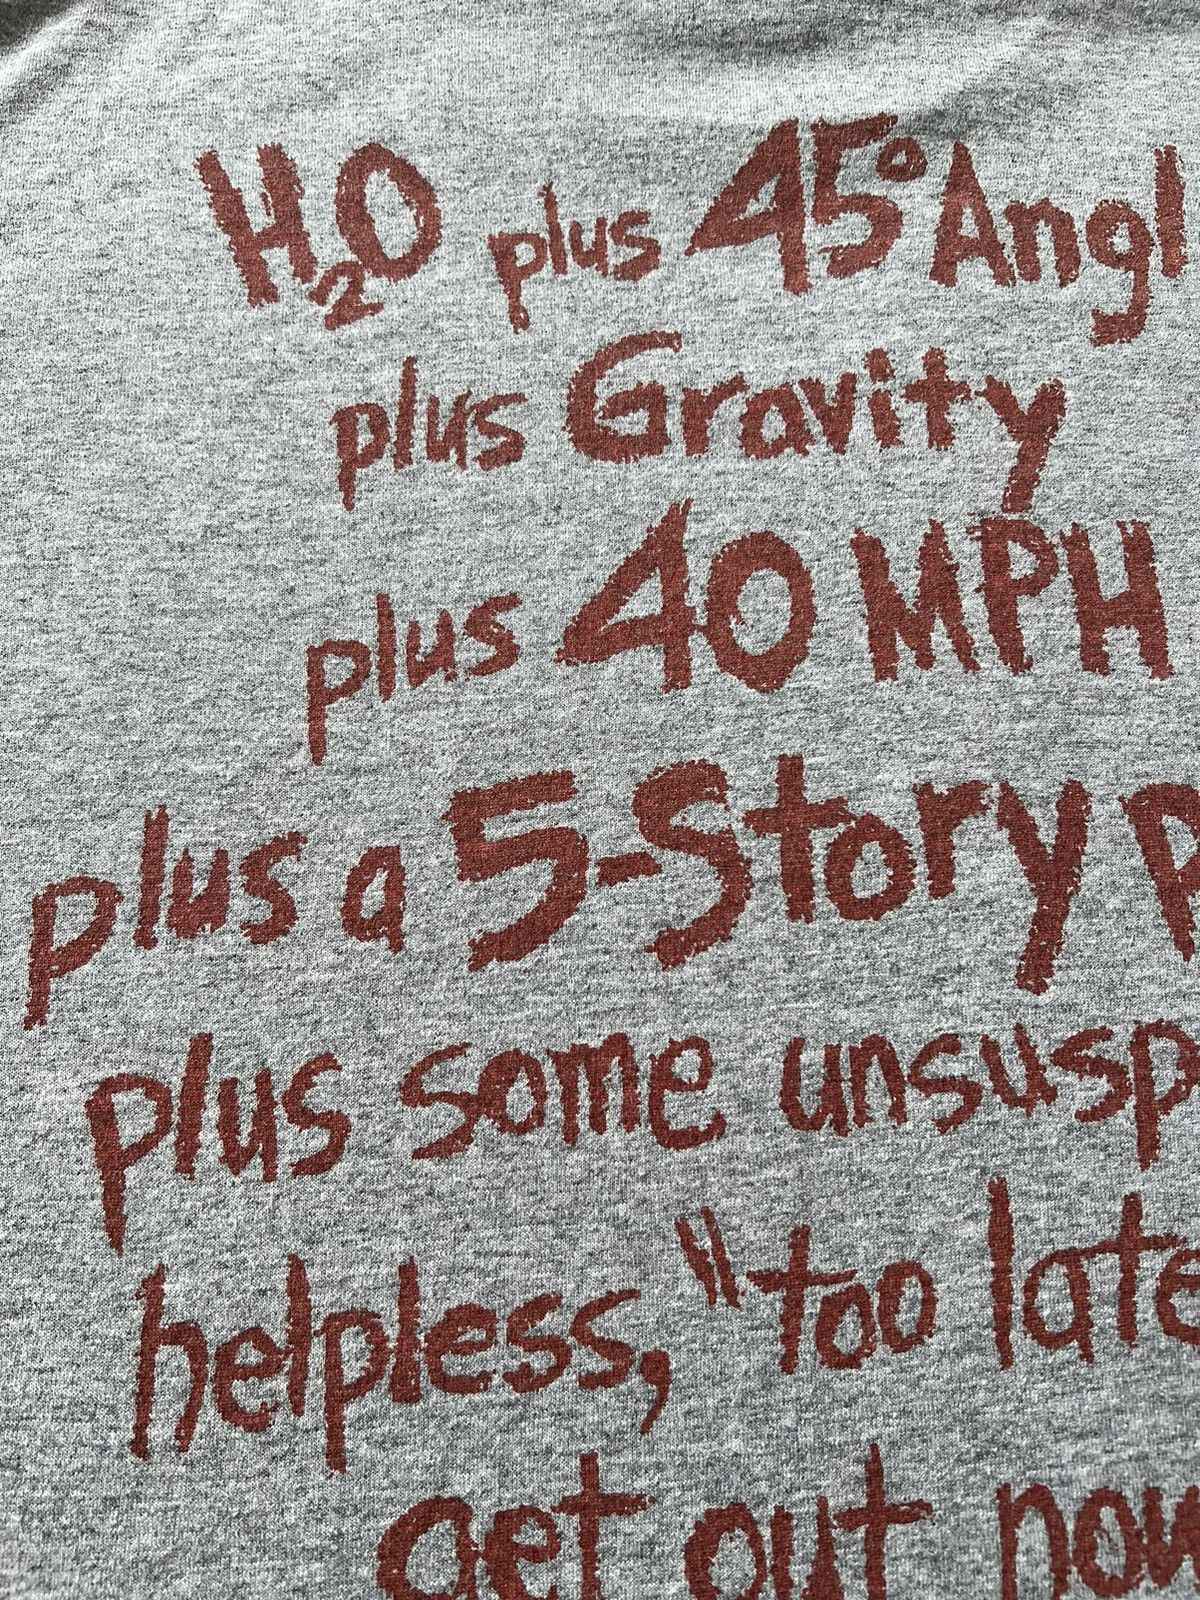 H₂O plus 45° Angl
plus Gravity
plus 40 MPH
plus a 5-Story P
plus some unsusp
helpless, "too late
get out now